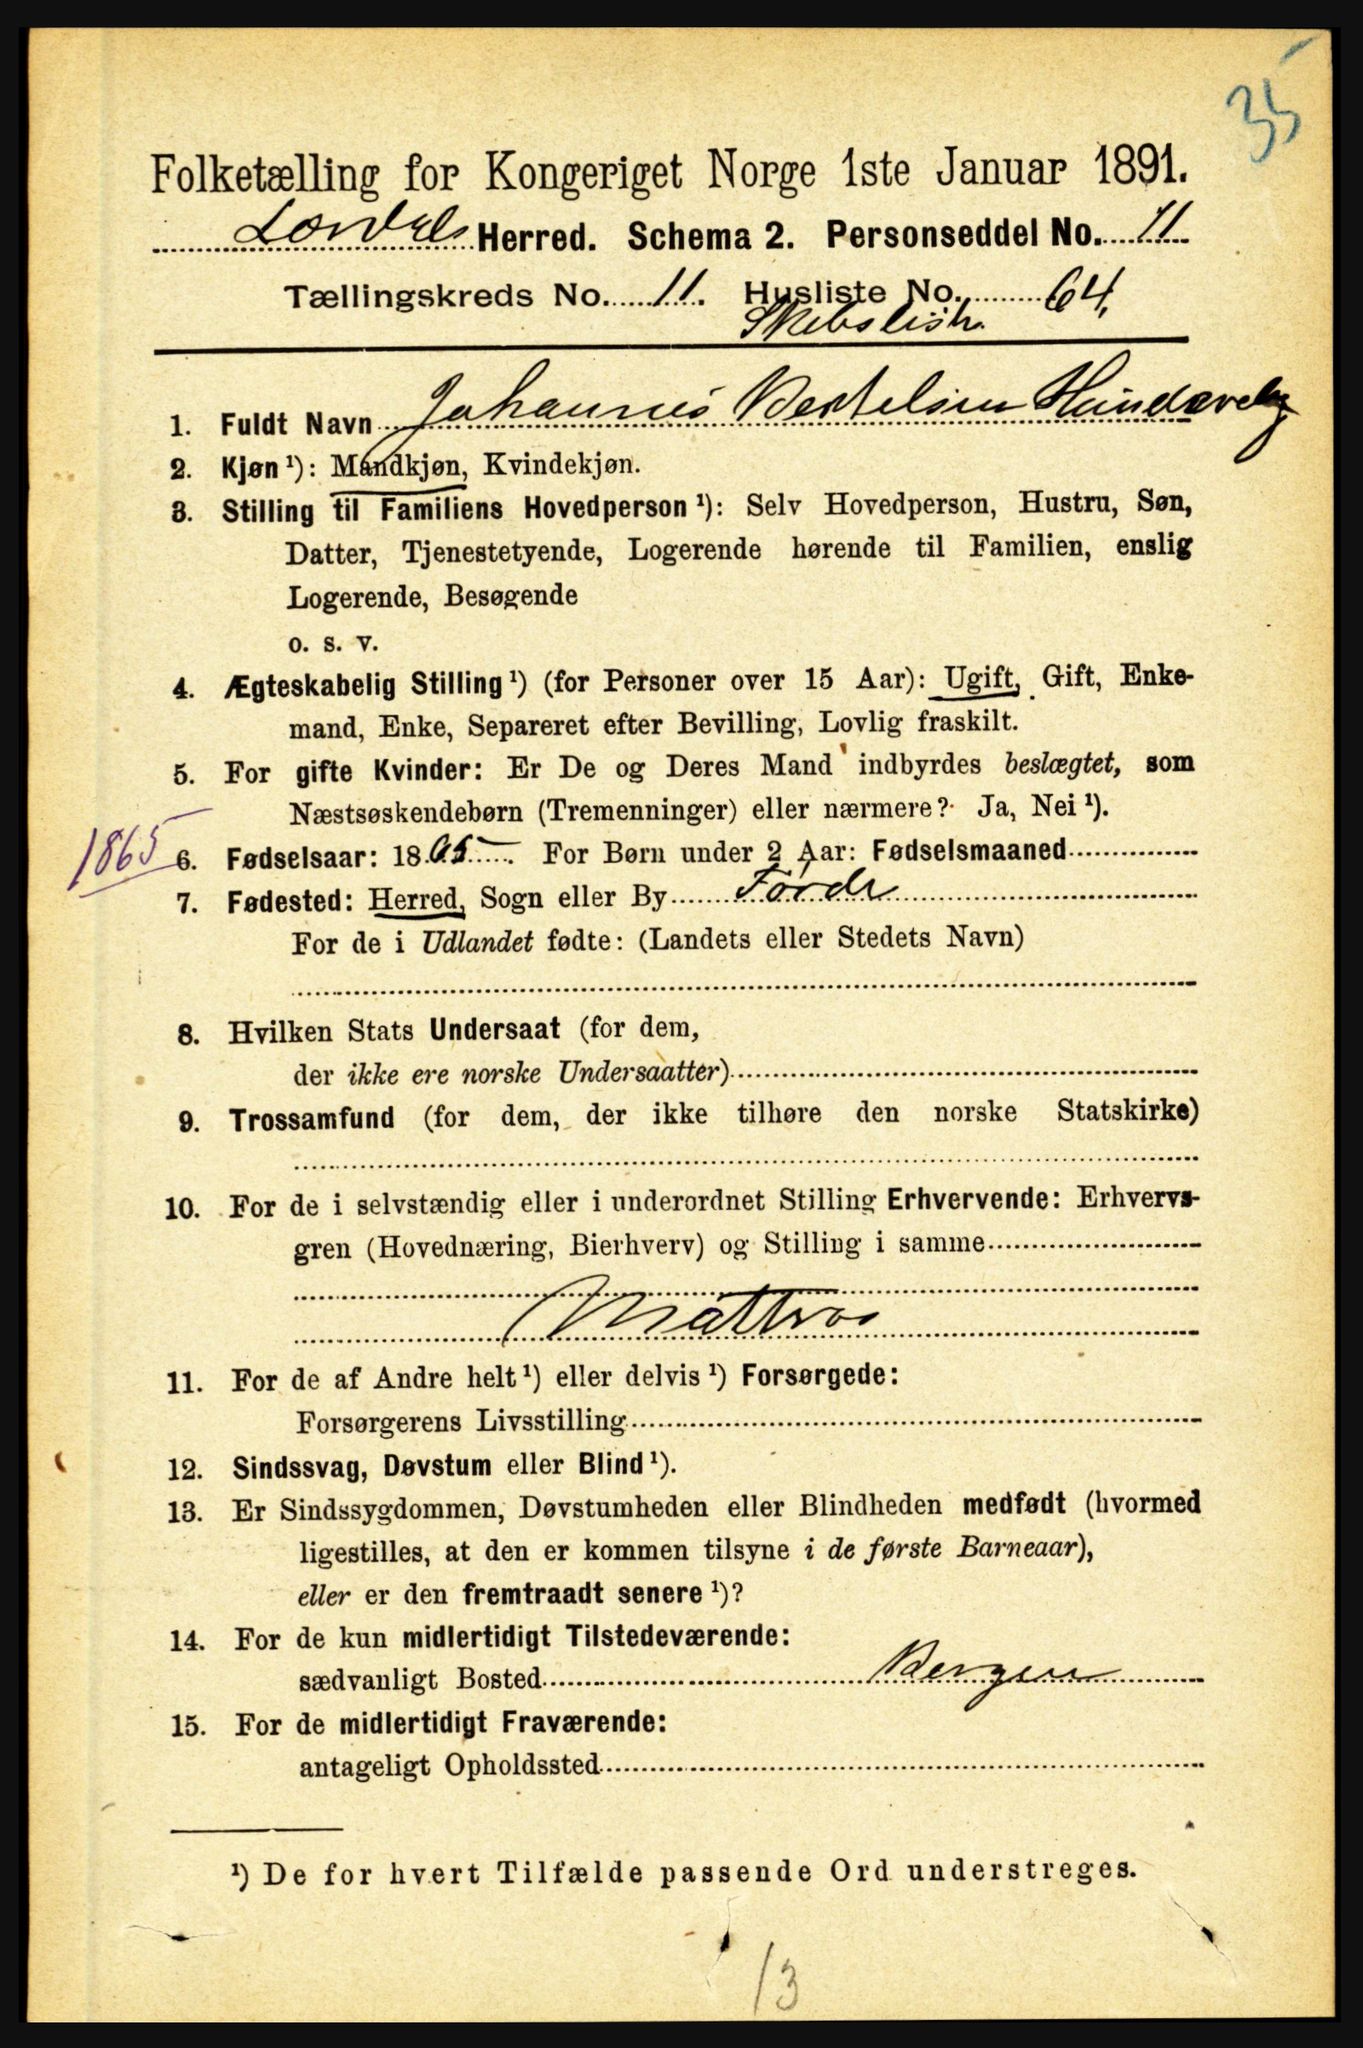 35
Folketælling for Kongeriget Norge 1ste Januar 1891.
Lærdals Herred. Schema 2. Personseddel No. 11
Tællingskreds No. 11. Husliste No. 64.
1. Fuldt Navn Johannes Bertelsen
2. Kjøn¹): Mandkjøn, Kvindekjøn.
3. Stilling til Familiens Hovedperson¹): Selv Hovedperson, Hustru, Søn,
Datter, Tjenestetyende, Logerende hørende til Familien, enslig
Logerende, Besøgende
o. s. v.
4. Ægteskabelig Stilling¹) (for Personer over 15 Aar): Ugift, Gift, Enke-
mand, Enke, Separeret efter Bevilling, Lovlig fraskilt.
5. For gifte Kvinder: Er De og Deres Mand indbyrdes beslægtet, som
Næstsøskendebørn (Tremenninger) eller nærmere? Ja, Nei¹).
1865 6. Fødselsaar: 1865. For Børn under 2 Aar: Fødselsmaaned
7. Fødested: Herred, Sogn eller By Førde
For de i Udlandet fødte: (Landets eller Stedets Navn)
8. Hvilken Stats Undersaat (for dem,
der ikke ere norske Undersaatter)
9. Trossamfund (for dem, der ikke tilhøre den norske Statskirke)
10. For de i selvstændig eller i underordnet Stilling Erhvervende: Erhvervs-
gren (Hovednæring, Bierhverv) og Stilling i samme
Mattros
11. For de af Andre helt¹) eller delvis¹) Forsørgede:
Forsørgerens Livsstilling
12. Sindssvag, Døvstum eller Blind¹).
13. Er Sindssygdommen, Døvstumheden eller Blindheden medfødt (hvormed
ligestilles, at den er kommen tilsyne i de første Barneaar),
eller er den fremtraadt senere¹)?
14. For de kun midlertidigt Tilstedeværende:
sædvanligt Bosted Bergen
15. For de midlertidigt Fraværende:
antageligt Opholdssted
¹) De for hvert Tilfælde passende Ord understreges.
13